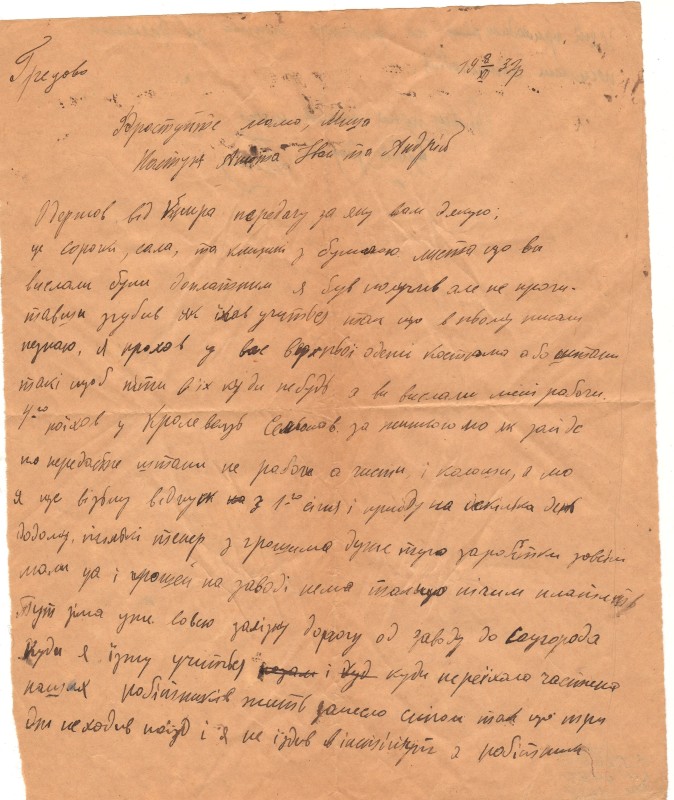 Гредово
19 8/XI 37р
Здраствуйте мамо, Миша
Настуня Анюта Іван та Андрій
Одержав від передачу за яку вам дякую;
це сорочки, сала, та книжки з бумагою листа що ви
вислали були доплатним я був получив але не прочи-
тавши згубив як їхав учитьсь так що в ньому писали
незнаю, я прохав у вас одежі костюма або штани
такі щоб піти в їх куди небудь а ви вислали мені рабочи.
поїхав у Кролевець за як заїде
то передасте штани не рабочи а чисти, і калоши, а мо
я ще візьму відпуск на з 1го січня і приїду на кілька день
додому, тільки тепер з грошима дуже туго заробітки зовсім
мали та і грошей на заводі нема нічим платить
Тут зіма уже всю залізну дорогу од заводу до Соцгорода
куди я їзжу учитьсь і куди переїхало частина
наших робітників жить занесло снігом так що три
дні неходив поїзд і я не їздив в інстітут а робітники